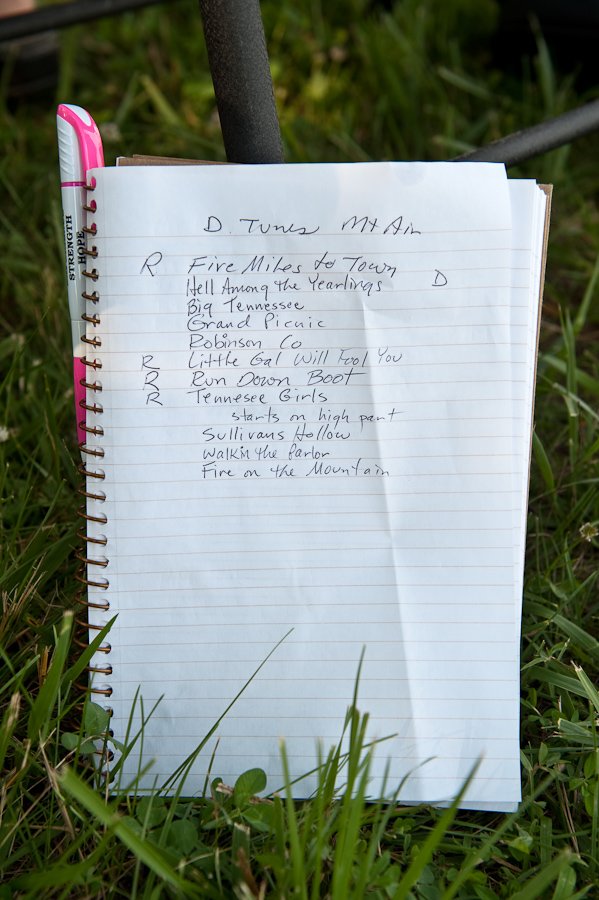 STRENGTH
HOPE
D. Tunes Mt Airy
R Five Miles to Town
Hell Among the Yearlings D
Big Tennessee
Grand Picnic
Robinson Co
R Little Gal Will Fool You
R Run Down Boot
R Tennesee Girls
starts on high part
Sullivans Hollow
Walkin the Parlor
Fire on the Mountain